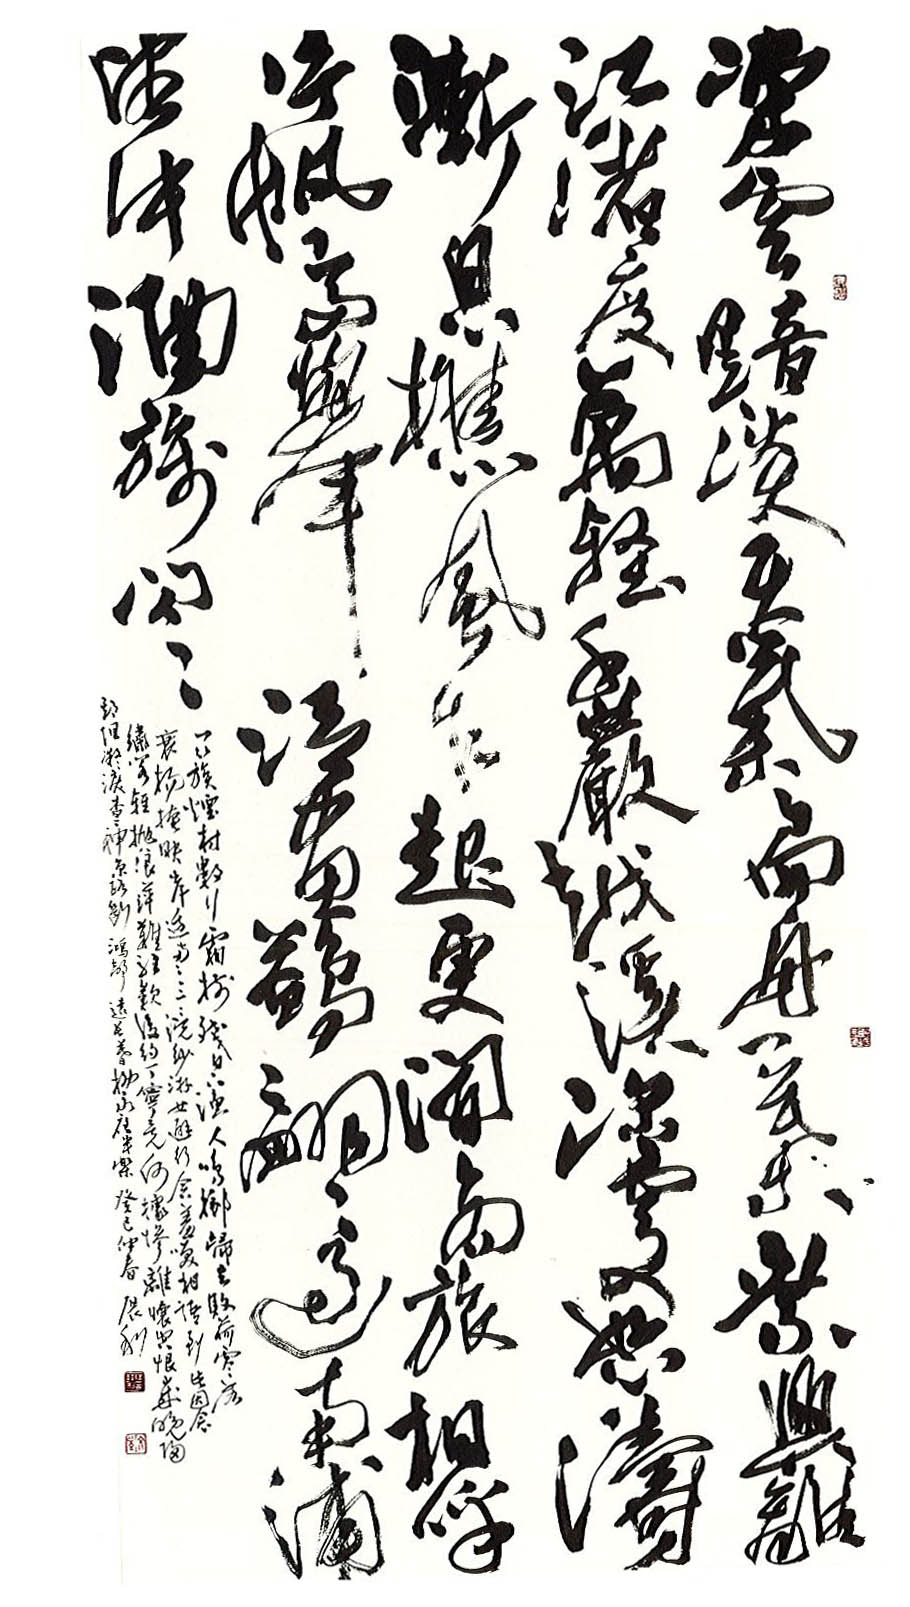 凍雲黯淡天氣扁舟一葉乘興離
江渚度萬壑千巖越溪深處怒濤
漸息樵風乍起更聞商旅相呼
片帆高舉泛畫鷁翩々過南浦
望中酒旆閃々
一簇煙村數行霜樹殘日下漁人鳴榔歸去敗荷零落
衰楊掩映岸邊兩々三々浣紗游女避行客含羞笑相語到此因念
繡閣輕拋浪萍難駐歎後約丁寧竟何據慘離懷空恨歲晚歸
期阻凝淚眼杳々神京路斷鴻聲遠長天暮 柳永夜半樂 癸巳仲春